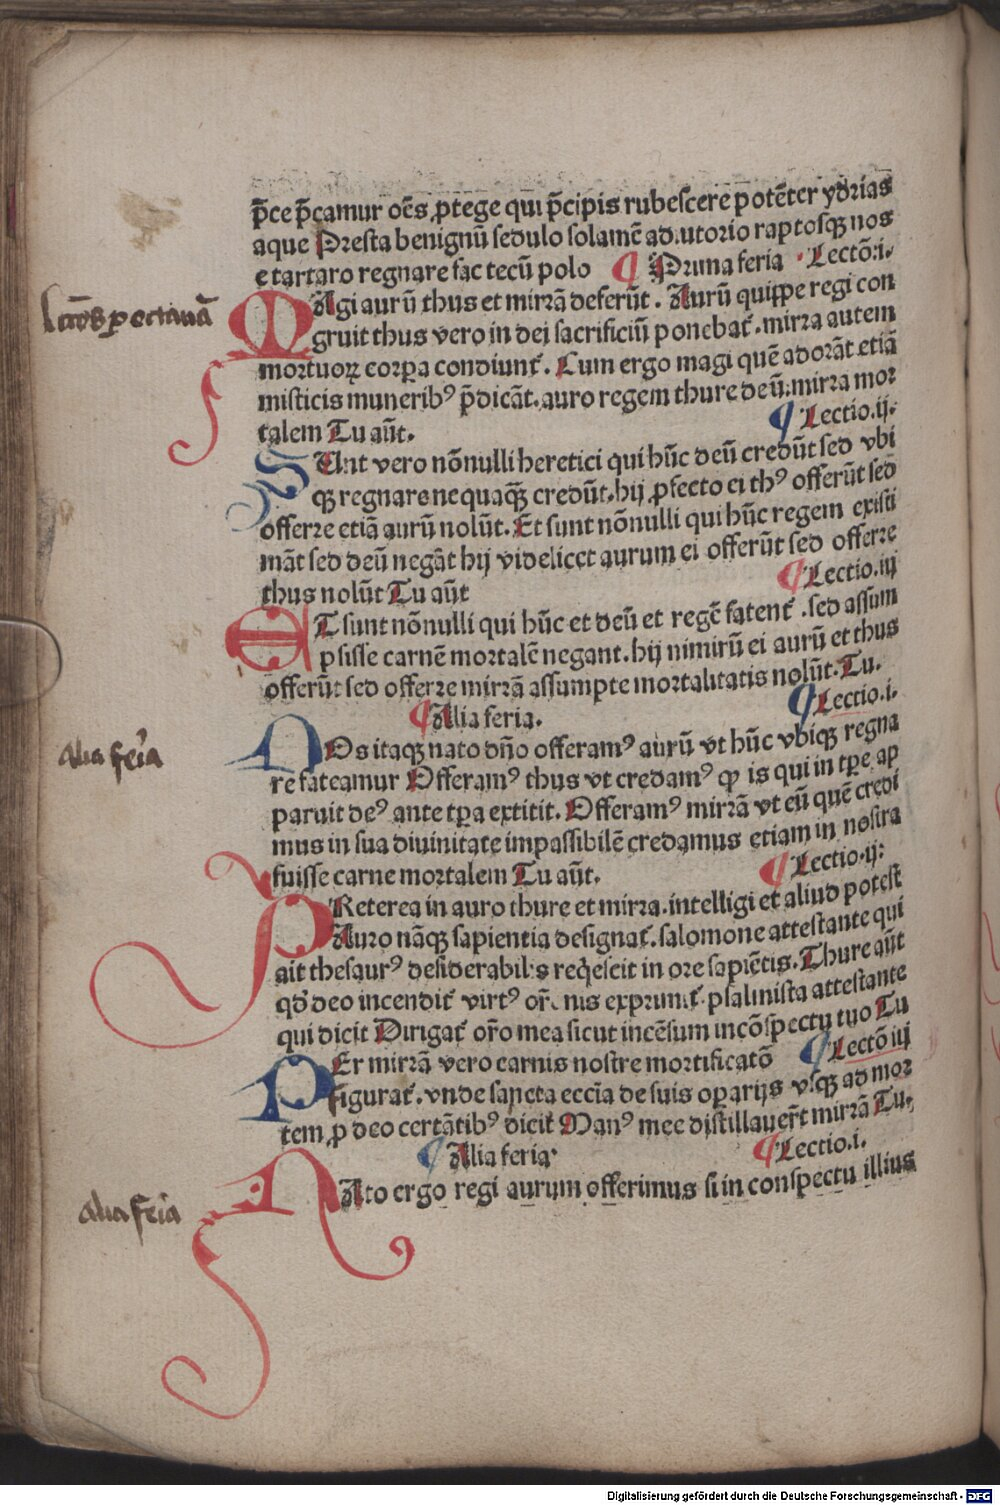 p̄ce p̄camur oēs ꝓtege qui p̄cipis rubescere potēter ydrias
aque Presta benignū sedulo solamē adiutorio raptosqꝫ nos
e tartaro regnare fac tecū polo ¶ Prima feria Lectō.i.
lectiōēs per octauā
MAgi aurū thus et mirrā deferūt. Aurū quippe regi con
gruit thus vero in dei sacrificiū ponebat᷑. mirra autem
mortuoꝝ corpa condiunt᷑. Cum ergo magi quē adorāt etiā
misticis munerib⁹ p̄dicāt. auro regem thure deū. mirra mor
talem Tu aūt. ¶ Lectio.ij.
SUnt vero nōnulli heretici qui hūc deū credūt sed vbi
qꝫ regnare nequaqꝫ̄ credūt. hij ꝓfecto ei th⁹ offerūt sed
offerre etiā aurū nolūt. Et sunt nōnulli qui hūc regem existi
māt sed deū negāt hij videlicet aurum ei offerūt sed offerre
thus nolūt Tu aūt ¶ Lectio.iij
ET sunt nōnulli qui hūc et deū et regē fatent᷑ . sed assum
psisse carnē mortalē negant. hij nimirū ei aurū et thus
offerūt sed offerre mirrā assumpte mortalitatis nolūt. Tu.
¶ Alia feria. ¶ Lectio.i.
alia feria
NOs itaqꝫ nato dn̄o offeram⁹ aurū vt hūc vbiqꝫ regna
re fateamur Offeram⁹ thus vt credam⁹ ꝙ is qui in tꝑe ap
paruit de⁹ ante tꝑa extitit. Offeram⁹ mirrā vt eū quē credi
mus in sua diuinitate impassibilē credamus etiam in nostra
fuisse carne mortalem Tu aūt. ¶ Lectio.ij:
PReterea in auro thure et mirra. intelligi et aliud potest
Auro nāqꝫ sapientia designat᷑. salomone attestante qui
ait thesaur⁹ desiderabilis reqͥescit in ore sapiētis. Thure aūt
qd̓ deo incendit᷑ virt⁹ or̄onis exprimit᷑. psalmista attestante
qui dicit Dirigat᷑ or̄o mea sicut incēsum in cōspectu tuo Tu
PEr mirrā vero carnis nostre mortificatō ¶ Lectō iij
figurat᷑. vnde sancta eccīa de suis oparijs vsqꝫ ad mor
tem ꝓ deo certātib⁹ dicit Man⁹ mee distillauer̄t mirrā Tu.
¶ Alia feria ¶ Lectio.i.
alia feria
NAto ergo regi aurum offerimus si in conspectu illius
Digitalisierung gefördert durch die Deutsche Forschungsgemeinschaft - DFG